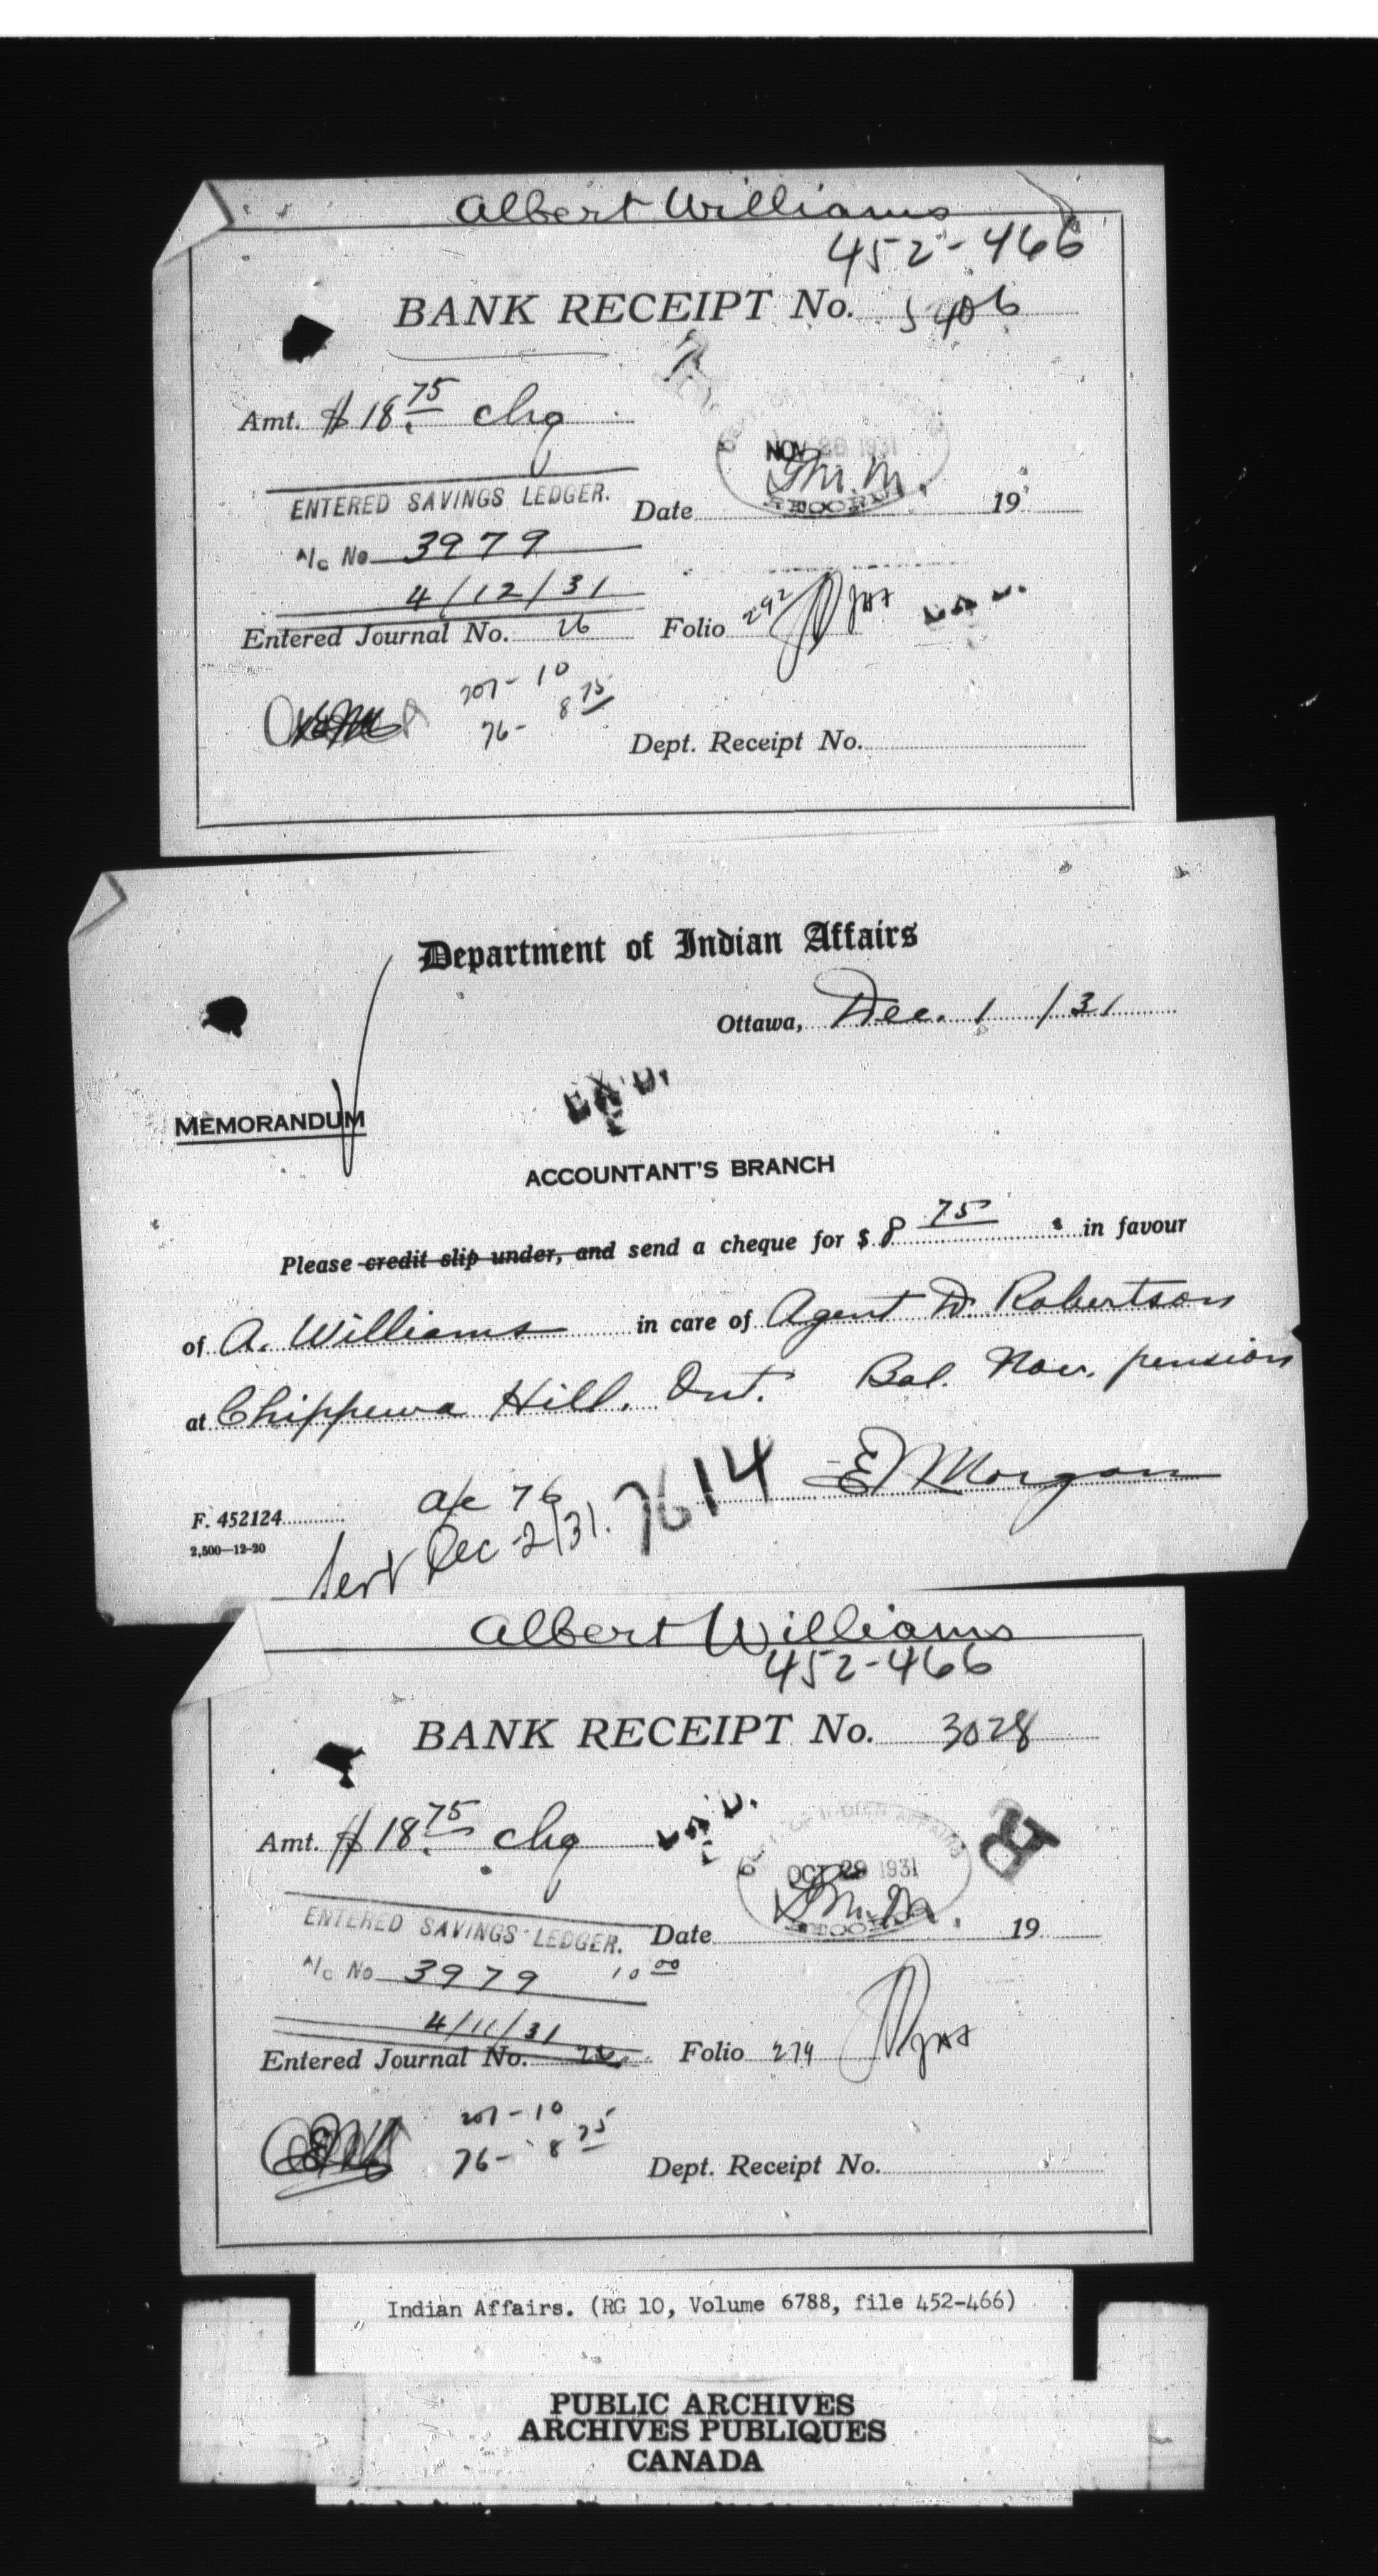 Albert Williams
452-466
BANK RECEIPT No. 5406
Amt. $18.75 chq
NOV 28 1931
ENTERED SAVINGS LEDGER.
Date 19
A/c No 3979
4/12/31
Entered Journal No. 26 Folio 292
207- 10
76- 8 75
Dept. Receipt No.
Department of Indian Affairs
Ottawa, Dec. 1 /31
MEMORANDUM
ACCOUNTANT'S BRANCH
Please credit slip under, and send a cheque for $ 8 75 in favour
of A. Williams in care of Agent D. Robertson
at Chippewa Hill, Ont. Bal. Nov. pension
E Morgan
a/c 76 7614
F. 452124
2,500—12-20
Sent Dec 2/31.
Albert Williams
452-466
BANK RECEIPT No. 3028
Amt. $18.75 chq
DEPT. OF INDIAN AFFAIRS
R
OCT 29 1931
ENTERED SAVINGS LEDGER.
Date 19
A/c No 3979 10 00
4/11/31
Entered Journal No. 26 Folio 279
207-10
76- 8 75
Dept. Receipt No.
Indian Affairs. (RG 10, Volume 6788, file 452-466)
PUBLIC ARCHIVES
ARCHIVES PUBLIQUES
CANADA